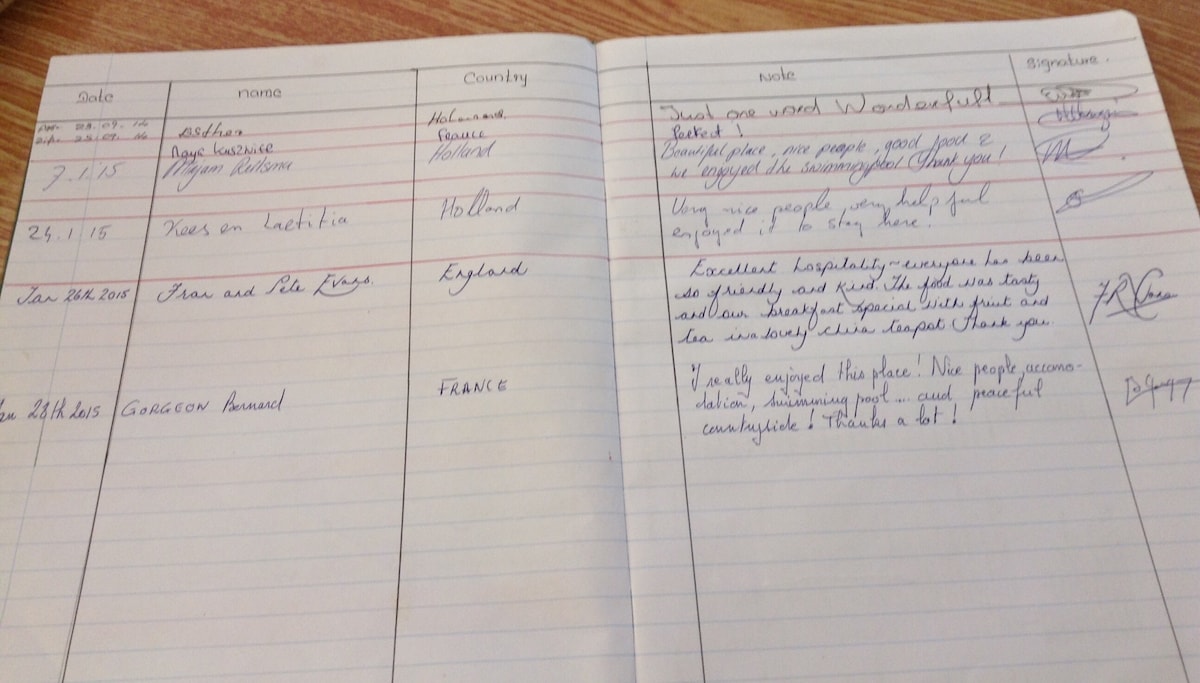 Date name Country Note Signature.
23.09.14 Esther Just one word Wonderfull
25.09.14 France Perfect !
7.1.15 Mirjam Holland Beautiful place, nice people, good food &
we enjoyed the swimmingpool Thank you!
24.1.15 Kees en Laetitia Holland Very nice people very helpful
enjoyed it to stay here.
Jan 26th 2015 Fran and Pete Evans. England Excellent hospitality - everyone has been
so friendly and kind. The food was tasty
and our breakfast special with fruit and
tea in a lovely china teapot Thank you.
28th 2015 GORGEON Bernard FRANCE I really enjoyed this place! Nice people, accomo-
dation, swimming pool ... and peaceful
countryside! Thanks a lot!